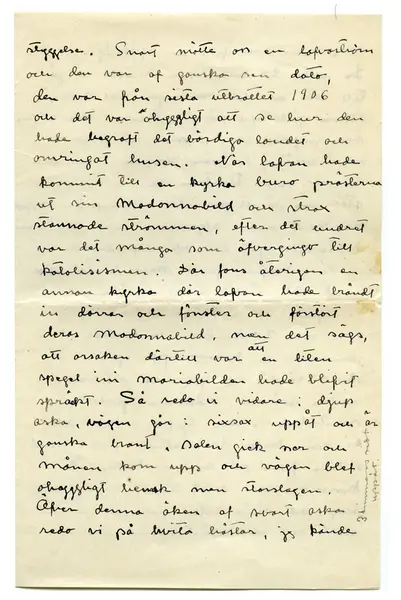 styggelse. Snart mötte oss en lafvaström
och den var af ganska sen dato,
den var från sista utbrottet 1906
och det var ohyggligt att se hur den
hade begraft det bördiga landet och
omringat husen. När lafvan hade
kommit till en kyrka buro prästerna
ut sin Madonnabild och strax
stannade strömmen, efter det undret
var det många som öfvergingo till
katolisismen. Där fans återigen en
annan kyrka där lafvan hade brändt
in dörrar och fönster och förstört
deras Madonnabild, men det sägs,
att orsaken därtill var att en liten
spegel inn Mariabilden hade blifvit
spräckt. Så redo vi vidare i djup
aska, vägen går i sixsax uppåt och är
ganska brant, solen gick ner och
månen kom upp och vägen blef
ohyggligt hemsk men storslagen.
Öfver denna öken af svart aska
redo vi på hvita hästar, jag kände